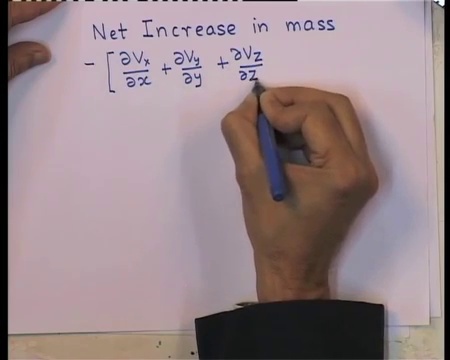 Net Increase in mass
- [ ∂Vx/∂x + ∂Vy/∂y + ∂Vz/∂z